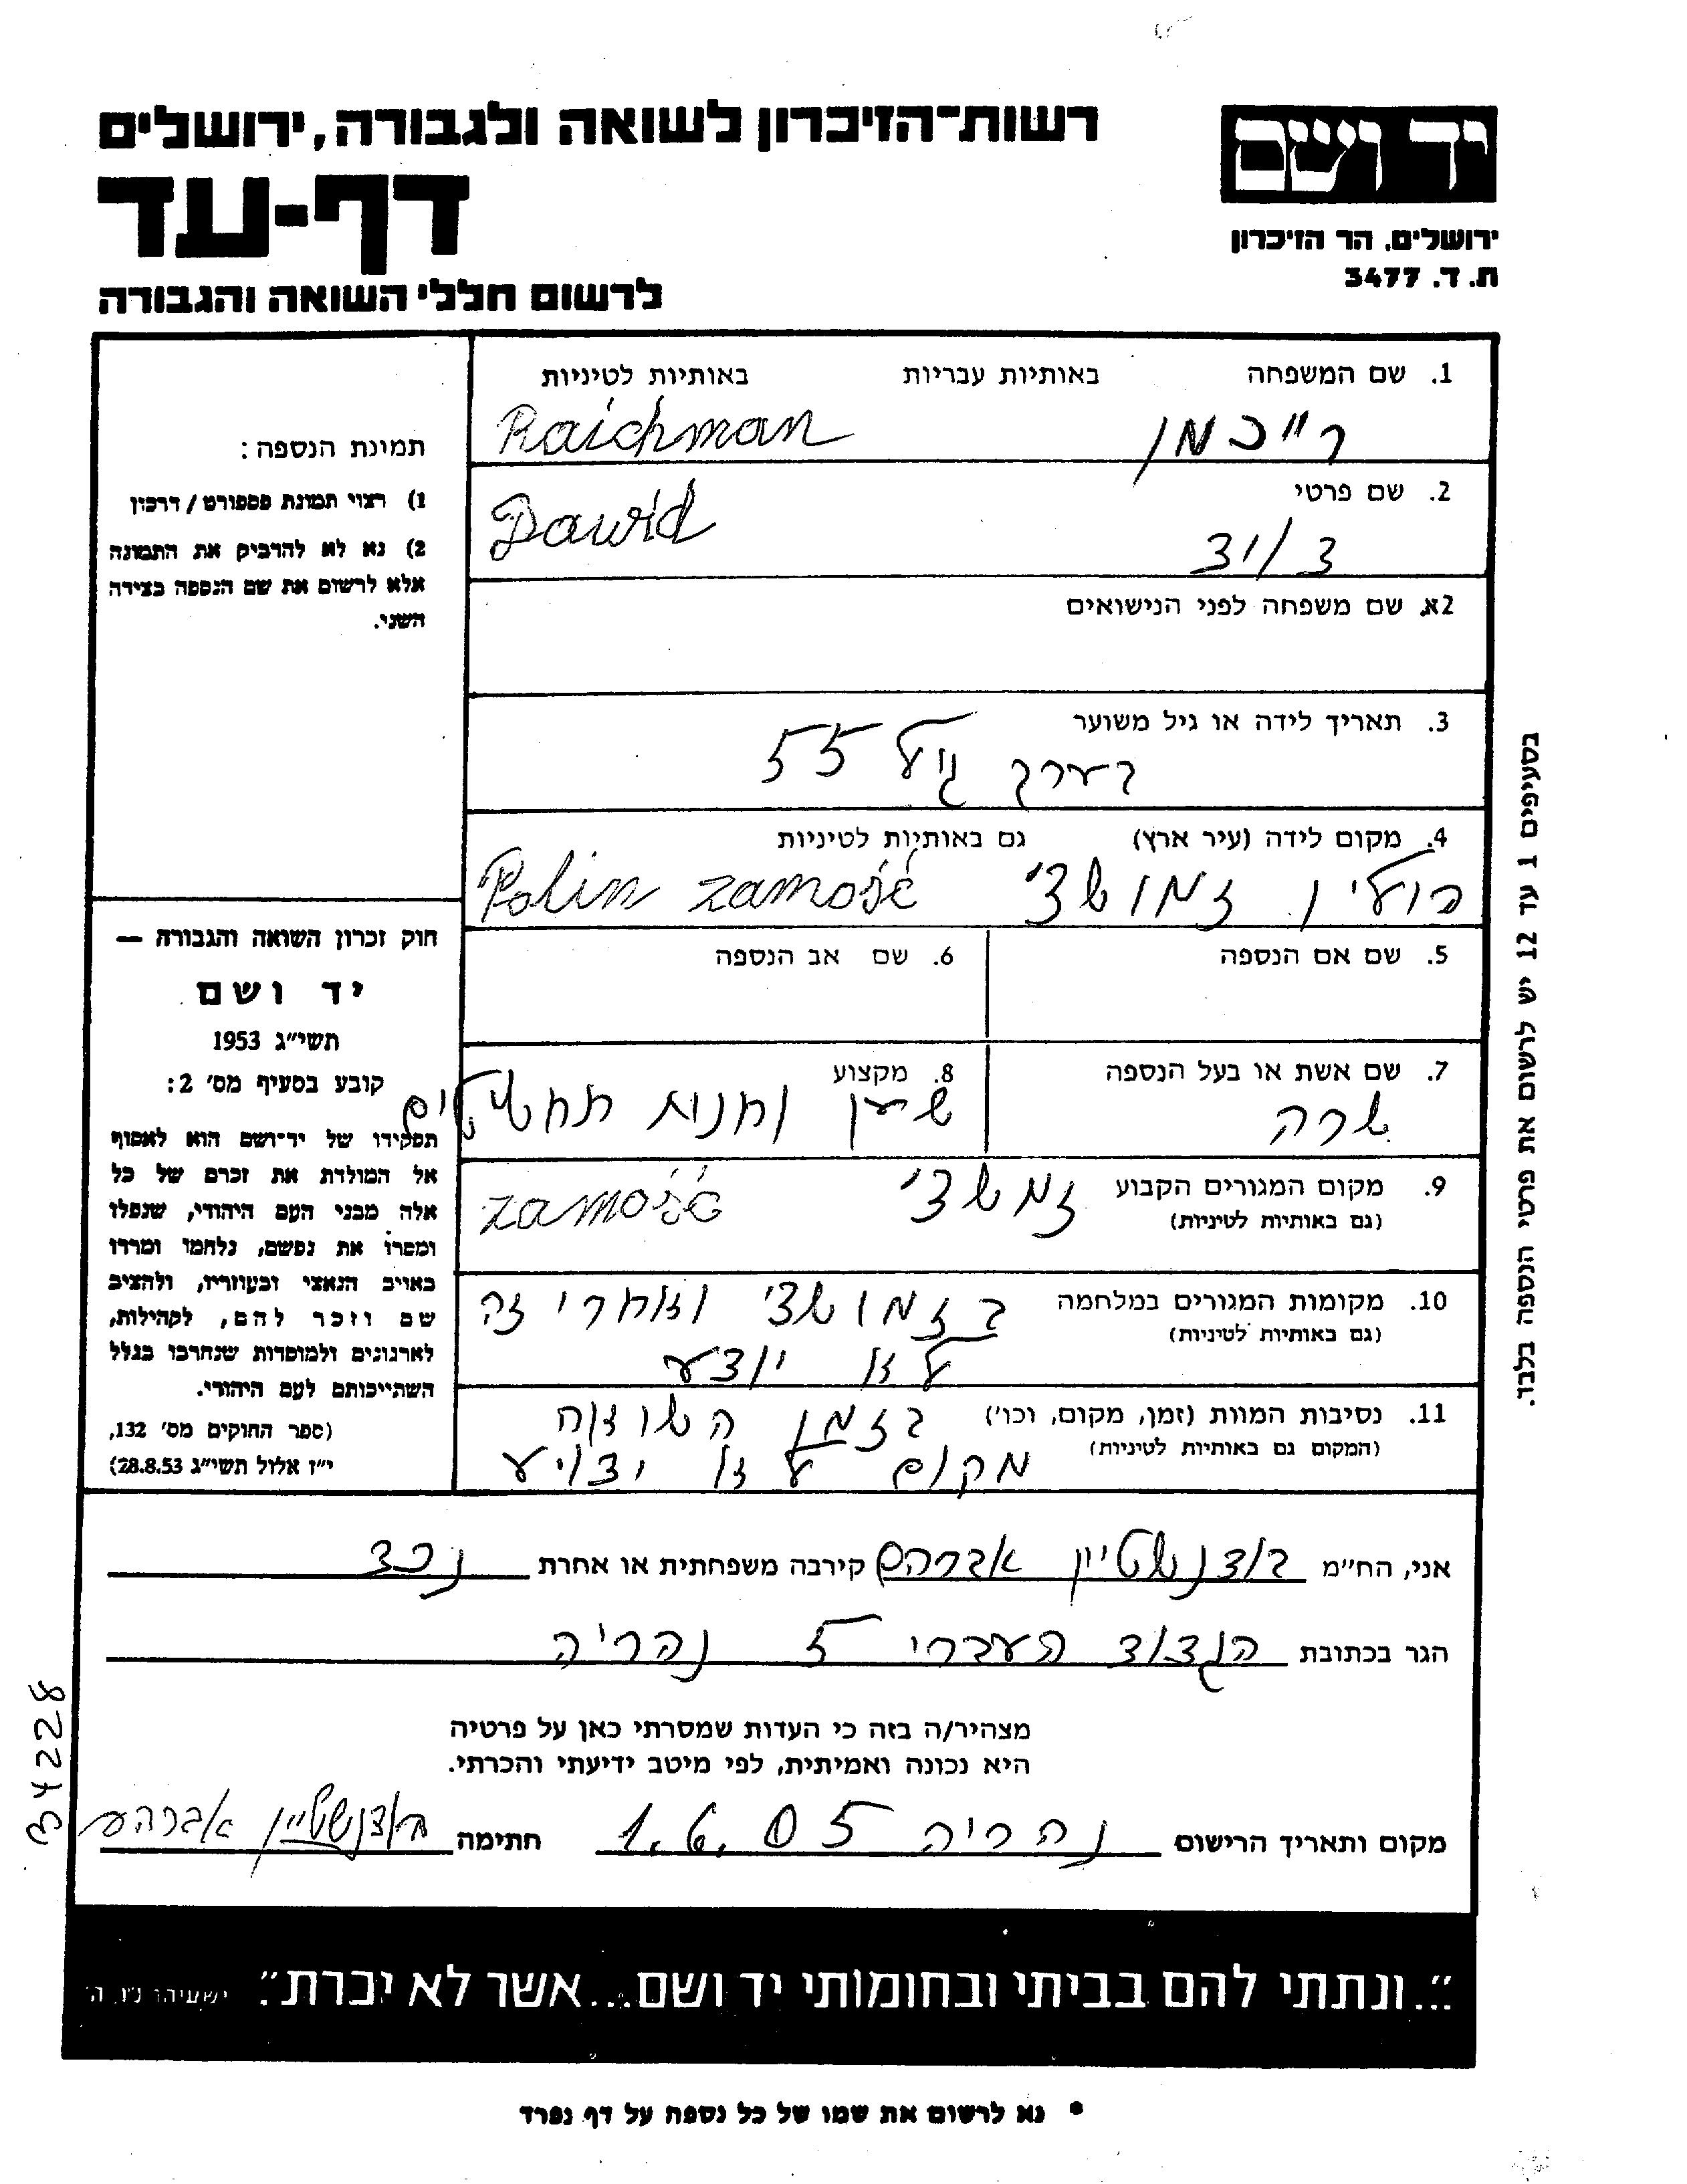 רשות־הזיכרון לשואה ולגבורה, ירושלים
דף-עד
לרשום חללי השואה והגבורה
יד ושם
ירושלים, הר הזיכרון
ת. ד. 3477
1. שם המשפחה באותיות עבריות באותיות לטיניות
רייכמן Raichman
2. שם פרטי
דויד Dawid
2א. שם משפחה לפני הנישואים
3. תאריך לידה או גיל משוער
בערך גיל 55
4. מקום לידה (עיר ארץ) גם באותיות לטיניות
פולין זמושצ' Polin zamość
5. שם אם הנספה 6. שם אב הנספה
7. שם אשת או בעל הנספה 8. מקצוע
שרה שען וחנות תחשיטים
9. מקום המגורים הקבוע
(גם באותיות לטיניות)
זמשצ' zamość
10. מקומות המגורים במלחמה
(גם באותיות לטיניות)
בזמושצ' ואחרי זה
לא יודע
11. נסיבות המוות (זמן, מקום, וכו')
(המקום גם באותיות לטיניות)
בזמן השואה
מקום לא ידוע
תמונת הנספה:
1) רצוי תמונת פספורט / דרכון
2) נא לא להדביק את התמונה
אלא לרשום את שם הנספה בצידה
השני.
חוק זכרון השואה והגבורה —
יד ושם
תשי"ג 1953
קובע בסעיף מס' 2:
תפקידו של יד־ושם הוא לאסוף
אל המולדת את זכרם של כל
אלה מבני העם היהודי, שנפלו
ומסרו את נפשם, נלחמו ומרדו
באויב הנאצי ובעוזריו, ולהציב
שם וזכר להם, לקהילות,
לארגונים ולמוסדות שנחרבו בגלל
השתייכותם לעם היהודי.
(ספר החוקים מס' 132,
י"ז אלול תשי"ג 28.8.53)
בסעיפים 1 עד 12 יש לרשום את פרטי הנספה בלבד.
אני, הח"מ בודנשטיין אברהם קירבה משפחתית או אחרת נכד
הגר בכתובת הגדוד העברי 5 נהריה
מצהיר/ה בזה כי העדות שמסרתי כאן על פרטיה
היא נכונה ואמיתית, לפי מיטב ידיעתי והכרתי.
מקום ותאריך הרישום נהריה 1.6.05 חתימה בודנשטיין אברהם
34228
"...ונתתי להם בביתי ובחומותי יד ושם...אשר לא יכרת". ישעיהו נ"ו, ה'
* נא לרשום את שמו של כל נספה על דף נפרד